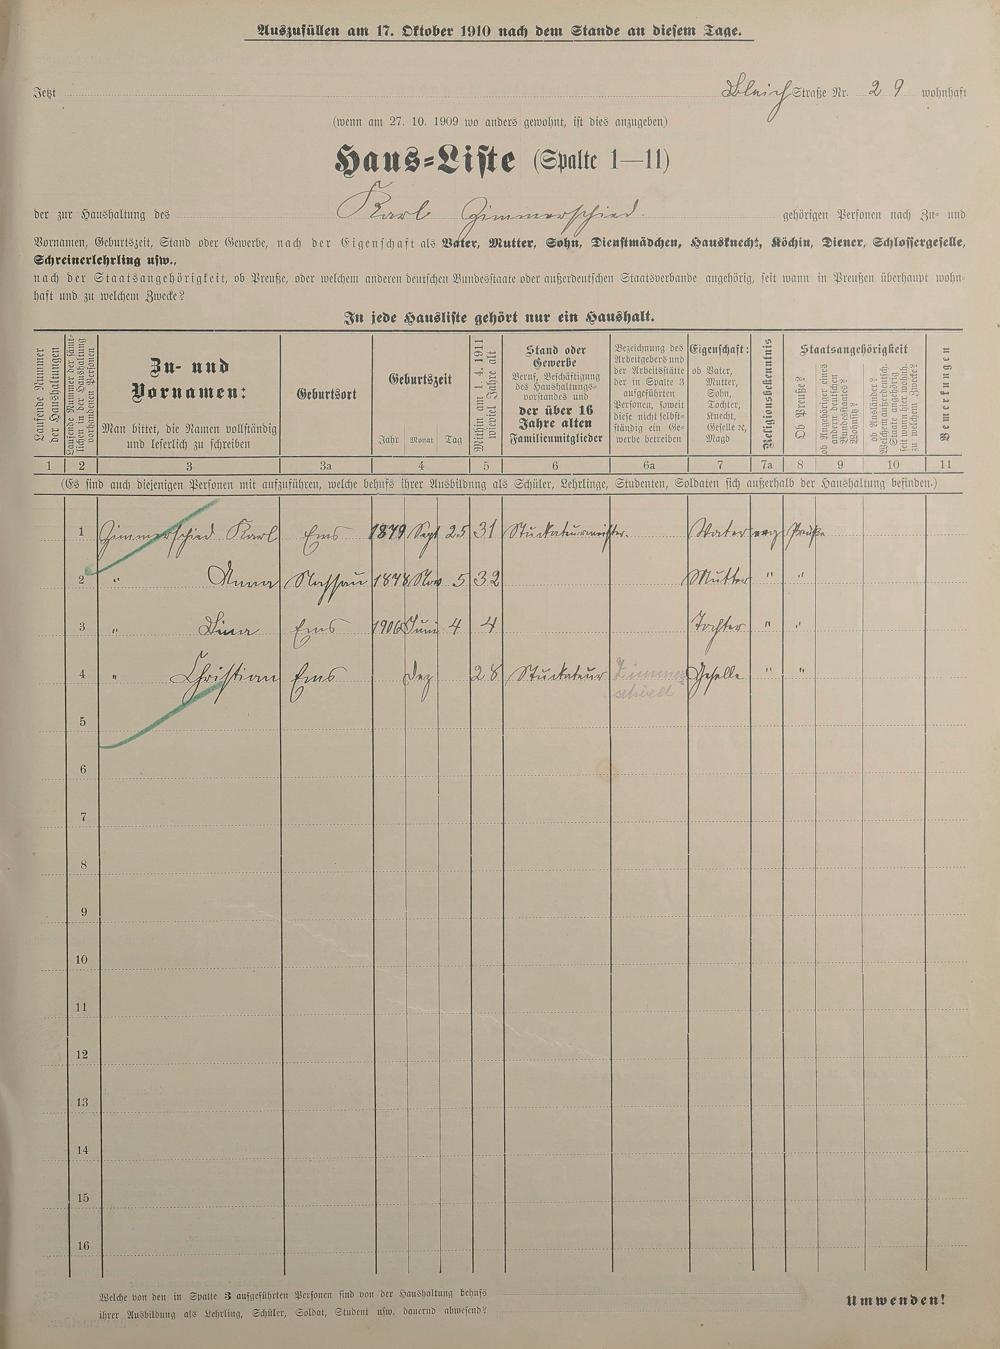 Auszufüllen am 17. Oktober 1910 nach dem Stande an diesem Tage.
Jetzt Bleich Straße Nr. 29 wohnhaft
(wenn am 27. 10. 1909 wo anders gewohnt, ist dies anzugeben)
Haus-Liste (Spalte 1—11)
der zur Haushaltung des Karl Zimmerschied. gehörigen Personen nach Zu- und
Vornamen, Geburtszeit, Stand oder Gewerbe, nach der Eigenschaft als Vater, Mutter, Sohn, Dienstmädchen, Hausknecht, Köchin, Diener, Schlossergeselle,
Schreinerlehrling usw.,
nach der Staatsangehörigkeit, ob Preuße, oder welchem anderen deutschen Bundesstaate oder außerdeutschen Staatsverbande angehörig, seit wann in Preußen überhaupt wohn-
haft und zu welchem Zwecke?
In jede Hausliste gehört nur ein Haushalt.
Laufende Nummer
der Haushaltungen
Laufende Nummer der sämt-
lichen in der Haushaltung
vorhandenen Personen
Zu- und
Vornamen:
Man bittet, die Namen vollständig
und leserlich zu schreiben
Geburtsort
Geburtszeit
Jahr Monat Tag
Mithin am 1. 4. 1911
wieviel Jahre alt
Stand oder
Gewerbe
Beruf, Beschäftigung
des Haushaltungs-
vorstandes und
der über 16
Jahre alten
Familienmitglieder
Bezeichnung des
Arbeitgebers und
der Arbeitsstätte
der in Spalte 3
aufgeführten
Personen, soweit
diese nicht selbst-
ständig ein Ge-
werbe betreiben
Eigenschaft:
ob Vater,
Mutter,
Sohn,
Tochter,
Knecht,
Geselle ꝛc,
Magd
Religionsbekenntnis
Staatsangehörigkeit
Ob Preuße?
ob Angehöriger eines
andern deutschen
Bundesstaates?
Wohnsitz?
ob Ausländer?
Welchem außerdeutsch.
Staate angehörig
seit wann hier wohnh.
zu welchem Zwecke?
Bemerkungen
1 2 3 3a 4 5 6 6a 7 7a 8 9 10 11
(Es sind auch diejenigen Personen mit aufzuführen, welche behufs ihrer Ausbildung als Schüler, Lehrlinge, Studenten, Soldaten sich außerhalb der Haushaltung befinden.)
1 Zimmerschied Karl Ems 1879 Sept 25 31 Stuckateurmeister. Vater evg Preuße
2 " Anna Nassau 1878 Nov 5 32 Mutter " "
3 " Lina Ems 1906 Juni 4 4 Tochter " "
4 " Christian Ems Dez 28 Stuckateur Zimmer Geselle " "
schied
5
6
7
8
9
10
11
12
13
14
15
16
Welche von den in Spalte 3 aufgeführten Personen sind von der Haushaltung behufs
ihrer Ausbildung als Lehrling, Schüler, Soldat, Student usw. dauernd abwesend?
Umwenden!